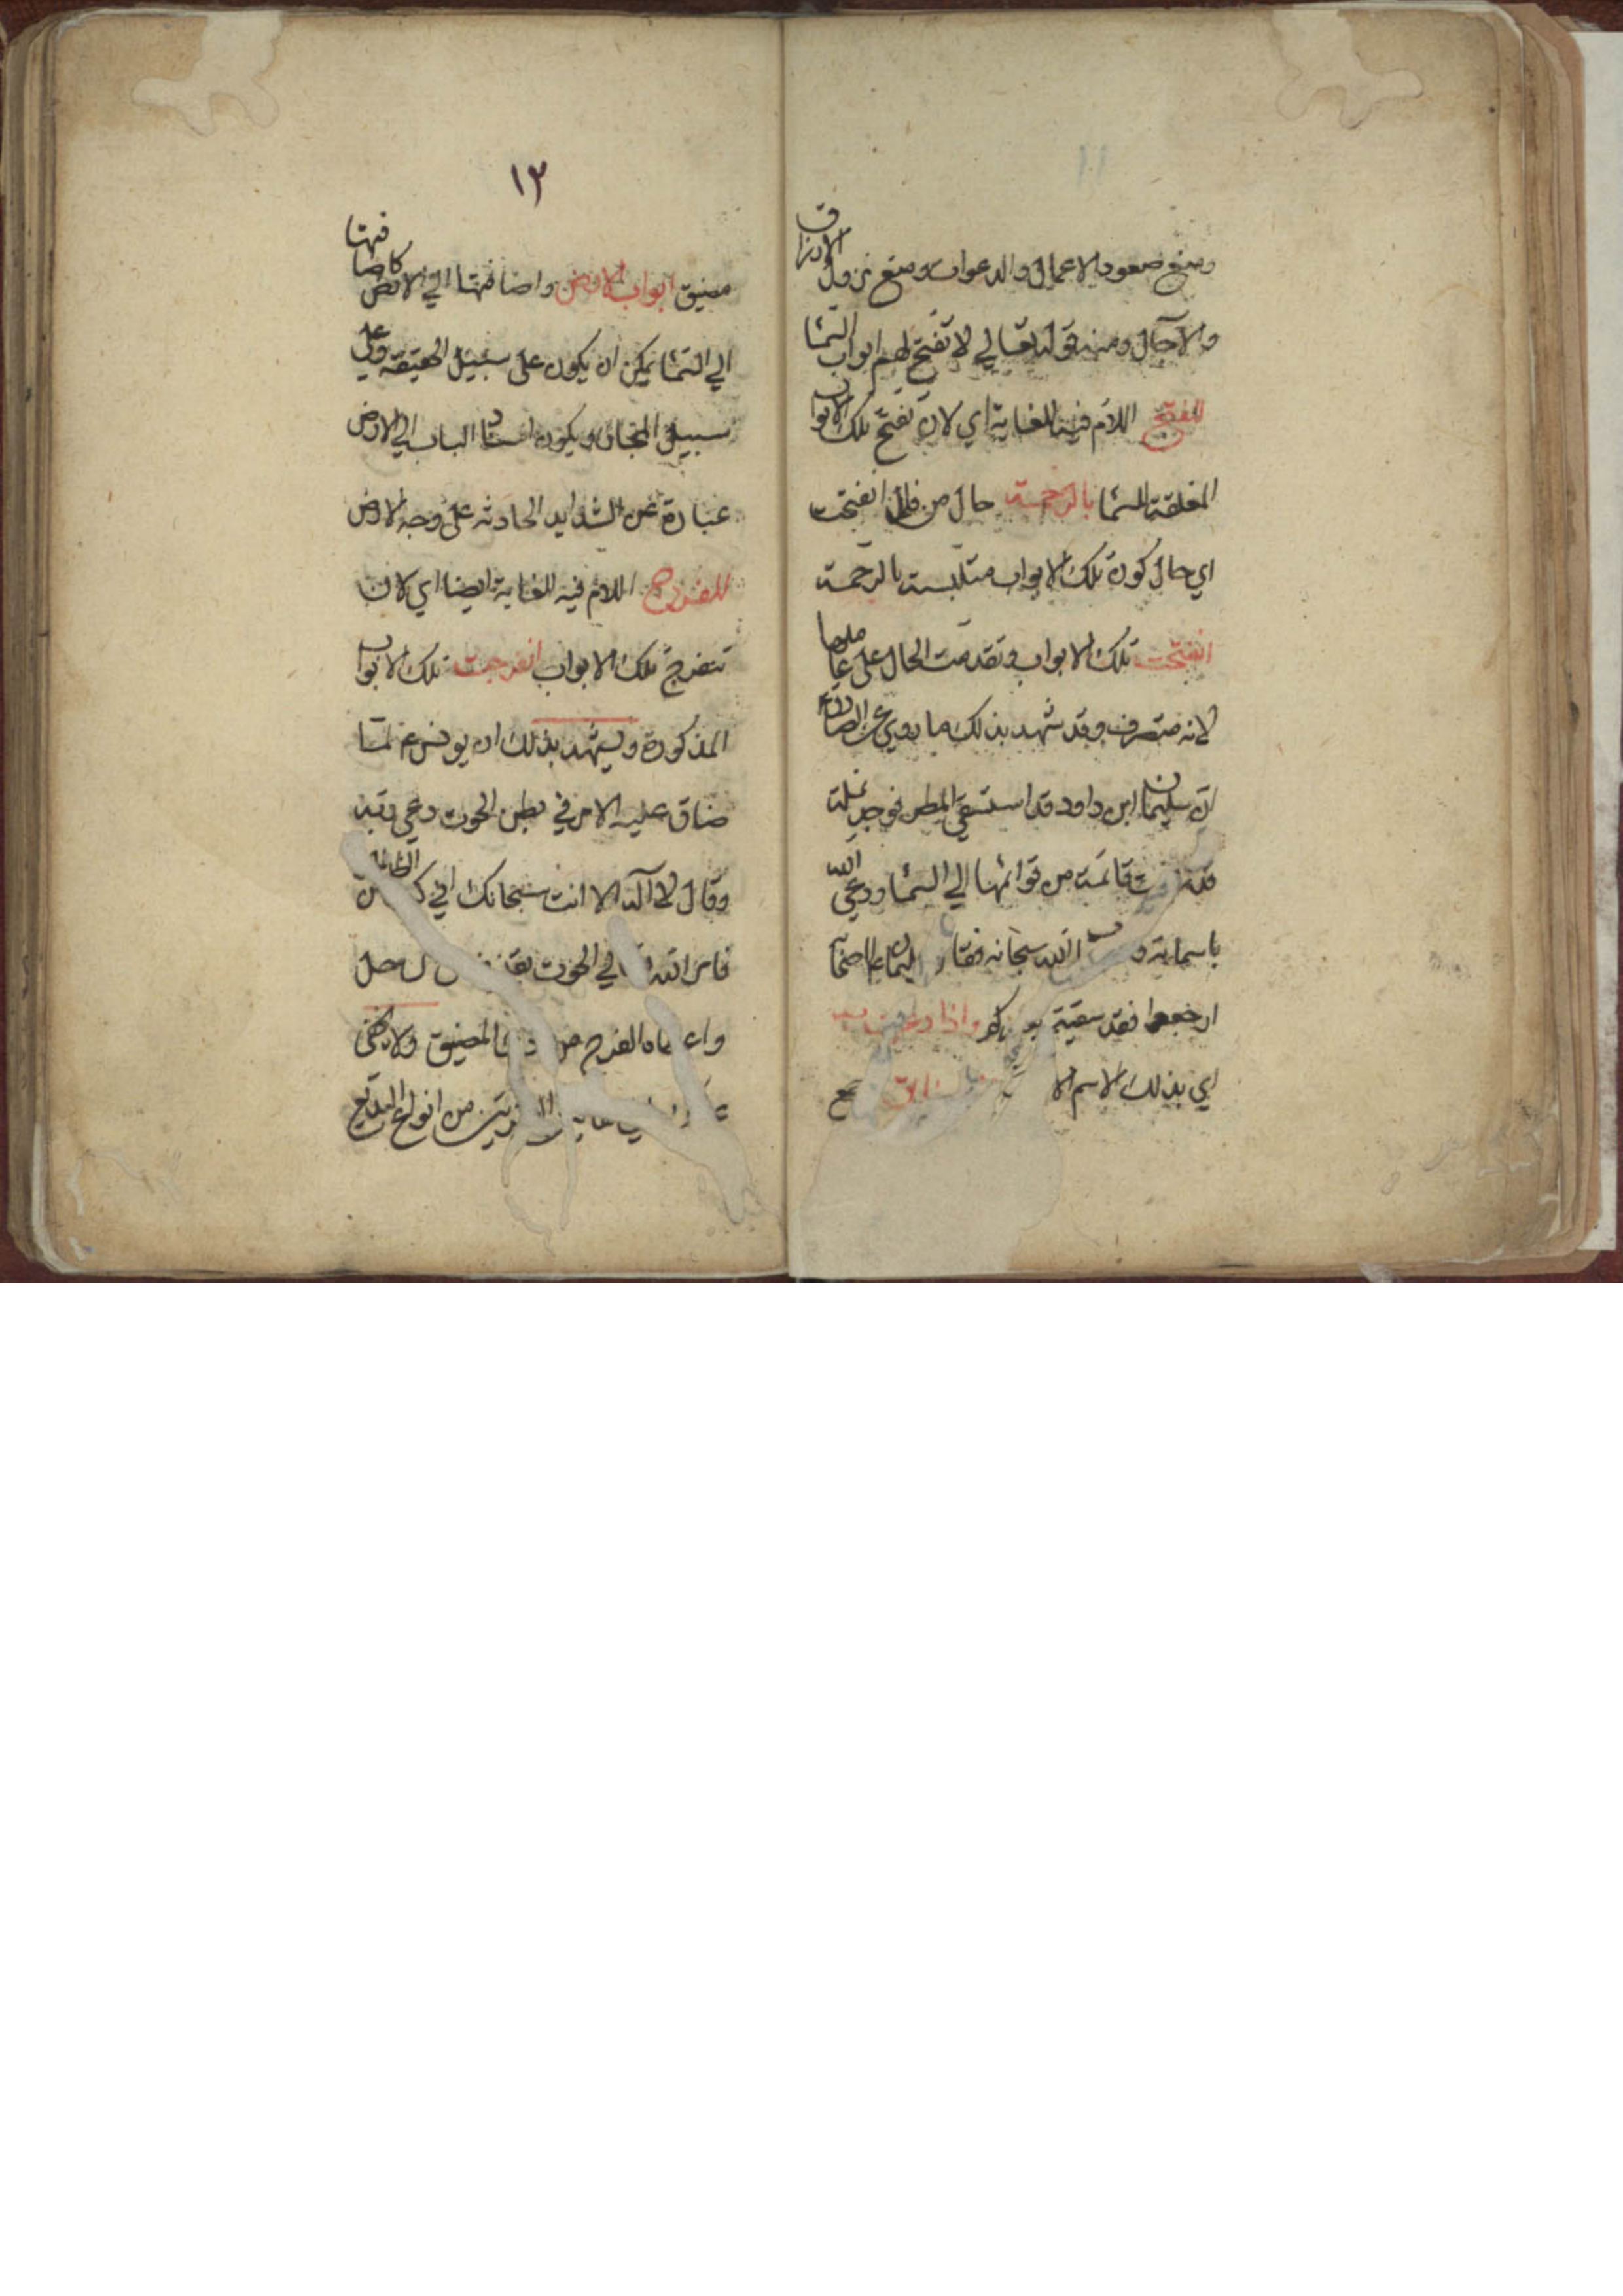 ومنع صعود الاعمال والدعوات ومنع نزول الارزاق
والآجال ومنه قوله تعالي لا تفتح لهم ابواب السما
للفتح اللام فيه للغاية اي لان تفتح تلك الابواب
المغلقة للسما بالرحمة حال من فاعل انفتحت
اي حال كون تلك الابواب متلبسة بالرحمة
انفتحت تلك الابواب وتقدمت الحال على عاملها
لانه متصرف وقد شهد بذلك ما روي عن الصادق
ان سليمان ابن داود قد استسقي المطر فوجد نملة
قد رفعت قائمة من قوائمها الي السما ودعي الله
باسمايه الله سبحانه فقال سليمان
ارجعوا فقد سقيتم بغيركم واذا دعيت به
اي بذلك الاسم الا
١٢
مضيق ابواب الارض واضافتها الي الارض كاضافتها
الي السما يمكن ان يكون على سبيل الحقيقة وعلي
سبيل المجاز ويكون اسناد الباب الي الارض
عبارة عن الشدايد الحادثه على وجه الارض
للفرج اللام فيه للغاية ايضا اي لان
تنفرج تلك الابواب انفرجت تلك الابواب
المذكورة ويشهد بذلك ان يونس ع لما
ضاق عليه الامر في بطن الحوت دعي ربه
وقال لا آله الا انت سبحانك اني كنت من الظالمين
فامر الله تعالي الحوت
واعطاه الفرج من المضيق ولا يخفى
من انواع البديع